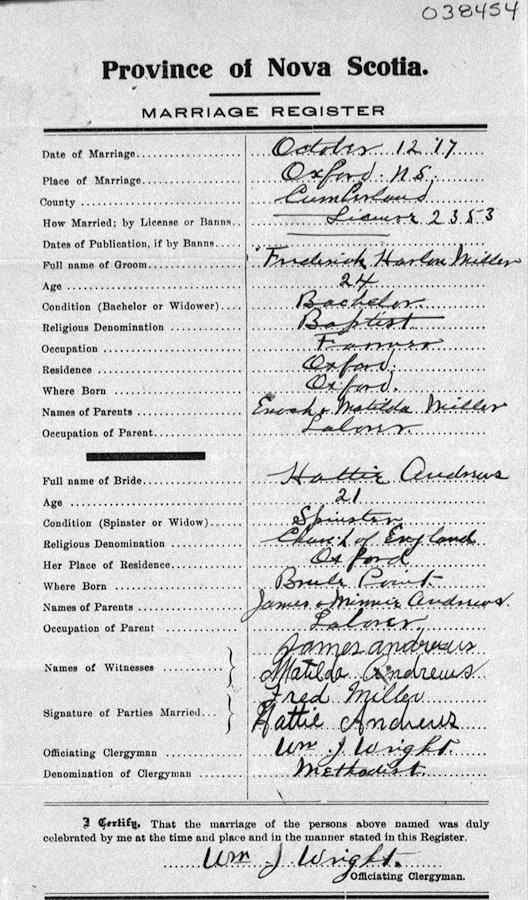 038454
Province of Nova Scotia.
MARRIAGE REGISTER
Date of Marriage October 12 '17
Place of Marriage Oxford N.S.
County Cumberland
How Married; by License or Banns 2353
Dates of Publication, if by Banns
Full name of Groom Frederick Harlon Miller
Age 24
Condition (Bachelor or Widower) Bachelor
Religious Denomination Baptist
Occupation Farmer
Residence Oxford.
Where Born Oxford.
Names of Parents Enoch & Matilda Miller
Occupation of Parent Laborer.
Full name of Bride Hattie Andrews
Age 21
Condition (Spinster or Widow) Spinster
Religious Denomination Church of England
Her Place of Residence Oxford
Where Born Brule Point
Names of Parents James & Minnie Andrews.
Occupation of Parent Laborer.
James andrews
Names of Witnesses Matilda Andrews
Fred Miller
Signature of Parties Married Hattie Andrews
Officiating Clergyman Wm J Wright.
Denomination of Clergyman Methodist.
I Certify, That the marriage of the persons above named was duly
celebrated by me at the time and place and in the manner stated in this Register.
Wm J Wright.
Officiating Clergyman.